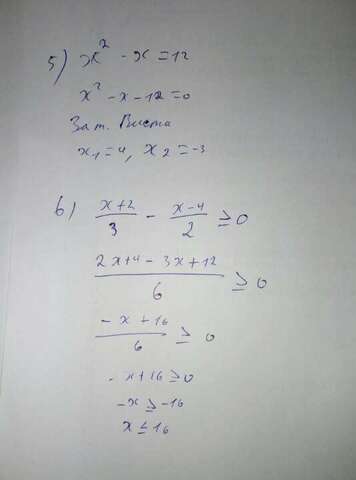 5) x² - x = 12
x² - x - 12 = 0
За т. Вієта
x₁ = 4, x₂ = -3
6) (x+2)/3 - (x-4)/2 ≥ 0
(2x+4-3x+12)/6 ≥ 0
(-x+16)/6 ≥ 0
-x+16 ≥ 0
-x ≥ -16
x ≤ 16